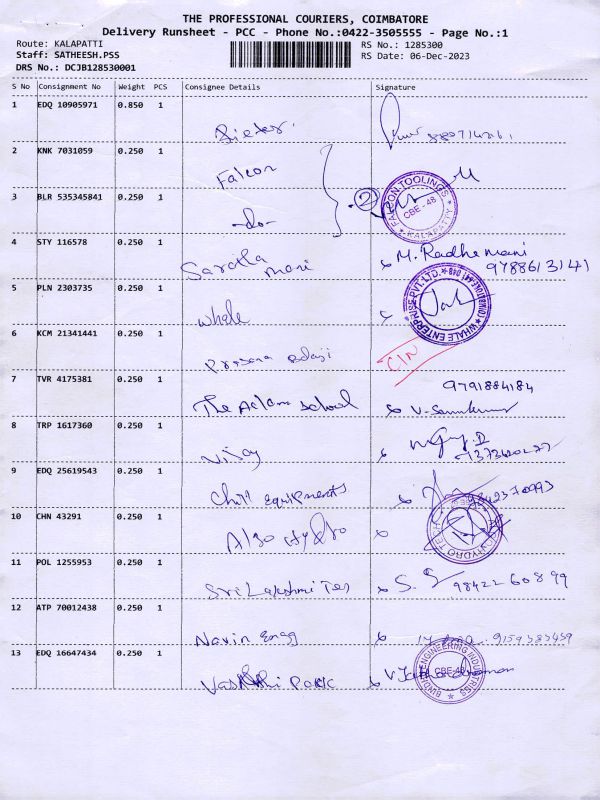 THE PROFESSIONAL COURIERS, COIMBATORE
Delivery Runsheet - PCC - Phone No.:0422-3505555 - Page No.:1
Route: KALAPATTI
Staff: SATHEESH.PSS
DRS No.: DCJB128530001
RS No.: 1285300
RS Date: 06-Dec-2023
S No Consignment No Weight PCS Consignee Details Signature
1 EDQ 10905971 0.850 1
2 KNK 7031059 0.250 1 Falcon
3 BLR 535345841 0.250 1 -do- 2
FALCON TOOLINGS
CBE-48
KALAPATTY
4 STY 116578 0.250 1 Saratha mani M. Radhe mani
9788613141
5 PLN 2303735 0.250 1 whale
WHALE ENTERPRISE PVT. LTD.
COIMBATORE-641 048
6 KCM 21341441 0.250 1 Prasana Balaji CIN
7 TVR 4175381 0.250 1 The Aclam School 9791884184
8 TRP 1617360 0.250 1 Vijay
9 EDQ 25619543 0.250 1 Chill equipments 9842370993
10 CHN 43291 0.250 1 Algo Hydro
HYDRO
11 POL 1255953 0.250 1 Sri Lakshmi Tex S. S 98422 60899
12 ATP 70012438 0.250 1 Navin Engg 9159383459
13 EDQ 16647434 0.250 1 park
ENGINEERING INDUSTRIES
CBE-48